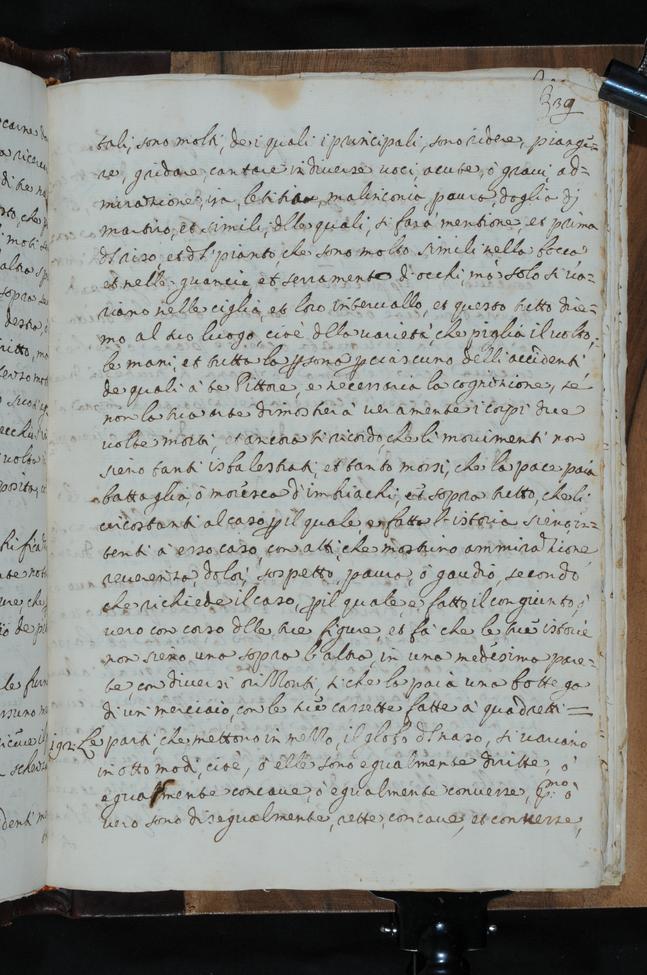 339
tali, sono molti, de i quali i principali, sono ridere, piange-
re, gridare, cantare in diverse voci, acute, ò gravi, ad-
miratione, ira, letitia, malinconia, paura, doglia di
martiro, et simili, delle quali, si farà mentione, et prima
del riso, et del pianto, che sono molto simili nella bocca
et nelle guancie, et serramento d'occhi, mà solo si va-
riano nelle ciglia, et loro intervallo, et questo tutto dire-
mo al suo luogo, cioè della varietà, che piglia il volto,
le mani, et tutta la persona per ciascuno delli accidenti
de quali à te Pittore, e necessaria la cognitione, se
non la tua arte dimosterà veramente i corpi due
volte morti, et ancora ti ricordo, che li movimenti non
sieno tanti isbalestrati, et tanto mossi, che la pace paia
battaglia, ò moresca d'imbriachi, et sopra tutto, che li
circostanti al caso per il quale, e fatta l'istoria sieno in-
tenti à esso caso, con atti, che mostrino ammiratione,
reverenza, dolor, sospetto, paura, ò gaudio, secondo
che richiede il caso, per il quale è fatto il congiunto, ò
vero concorso delle tue figure, et fà che le tue istorie
non sieno una sopra l'altra, in una medesima pare-
te, con diversi orizzonti, si che la paia una bottega
di un merciaio, con le sue cassette fatte à quadretti =
Le parti, che mettono in mezzo, il globo del naso, si variano
in otto modi, cioè, ò elle sono egualmente diritte, ò
egualmente concave, ò egualmente convesse, p.mo ò
vero sono disegualmente, rette, concave, et convesse,